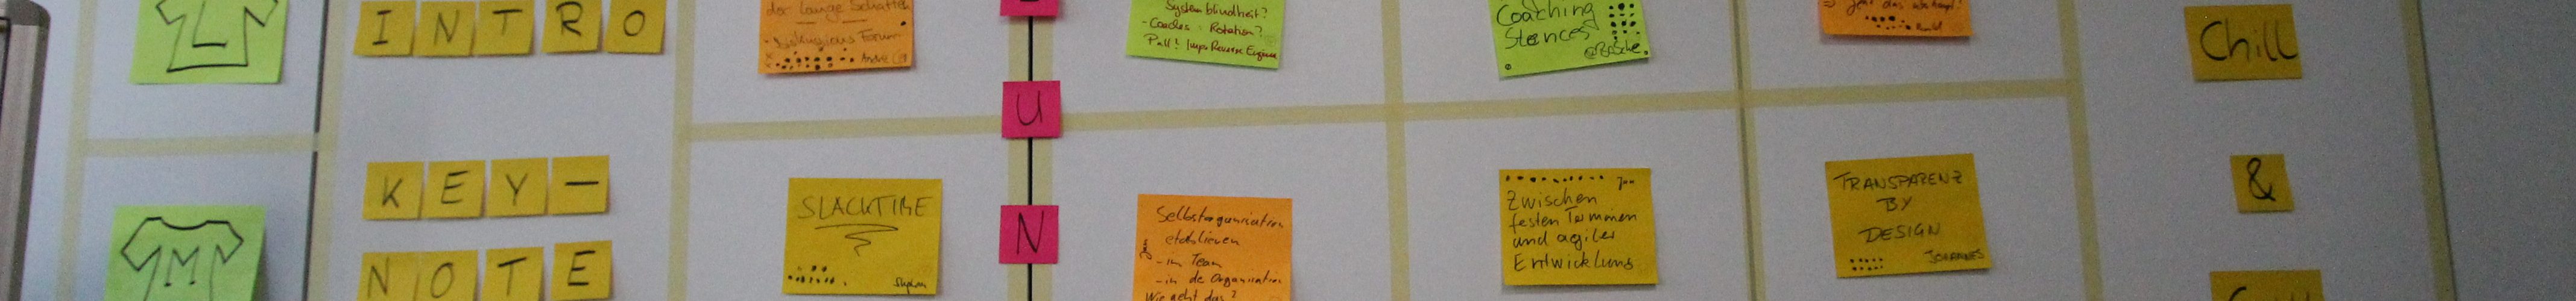 L
INTRO
der lange Schatten
Diskussions Forum
André
Systemblindheit?
- Coaches Rotation?
Pull! Impr Reverse Engine
Coaching
Stances
das
Chill
U
KEY-
SLACKTIME
N
Selbstorganisation
etablieren
- im Team
- in de Organisation
Wie geht das?
Zwischen
festen Terminen
und agiler
Entwicklung
TRANSPARENZ
BY
DESIGN
JOHANNES
&
M
NOTE